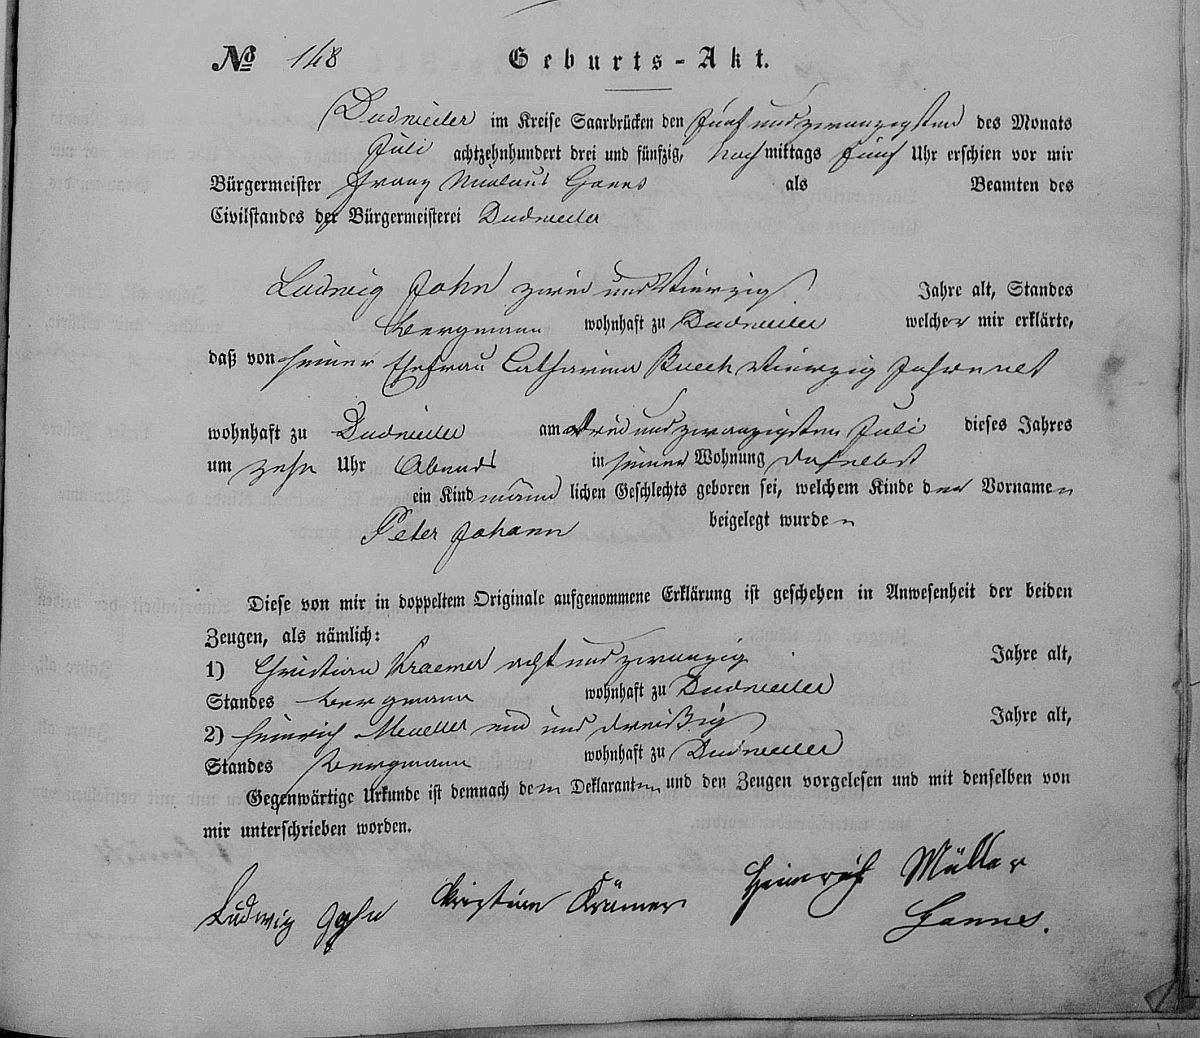 № 148 Geburts-Akt.
Dudweiler im Kreise Saarbrücken den fünf und zwanzigsten des Monats
Juli achtzehnhundert drei und fünfzig, Nachmittags fünf Uhr erschien vor mir
Bürgermeister Franz Nicolaus als Beamten des
Civilstandes der Bürgermeisterei Dudweiler
Ludwig John zwei und Vierzig Jahre alt, Standes
Bergmann wohnhaft zu Dudweiler welcher mir erklärte,
daß von seiner Ehefrau Catharina Buech Vierzig Jahre alt
wohnhaft zu Dudweiler am drei und zwanzigsten Juli dieses Jahres
um zehn Uhr Abends in seiner Wohnung daselbst
ein Kind männlichen Geschlechts geboren sei, welchem Kinde der Vornamen
Peter Johann beigelegt wurden
Diese von mir in doppeltem Originale aufgenommene Erklärung ist geschehen in Anwesenheit der beiden
Zeugen, als nämlich:
1) Christian Kraemer acht und zwanzig Jahre alt,
Standes Bergmann wohnhaft zu Dudweiler
2) Heinrich Mueller ein und dreißig Jahre alt,
Standes Bergmann wohnhaft zu Dudweiler
Gegenwärtige Urkunde ist demnach dem Deklaranten und den Zeugen vorgelesen und mit denselben von
mir unterschrieben worden.
Ludwig John Kristian Krämer Heinrich Müller